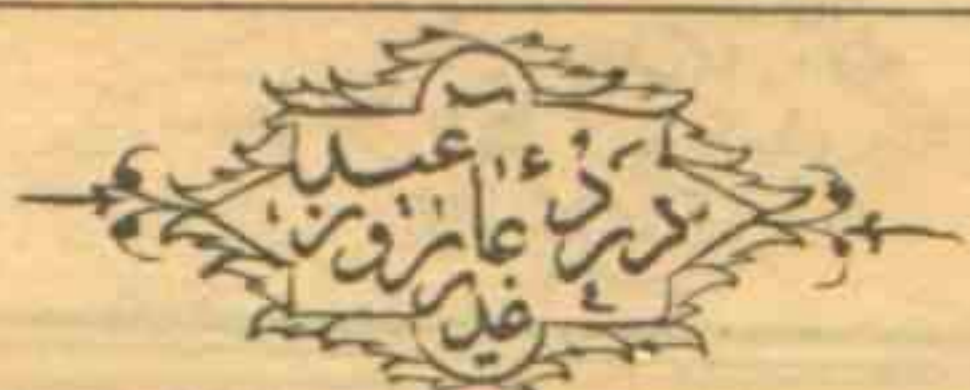 در دعاء روز عید غدیر